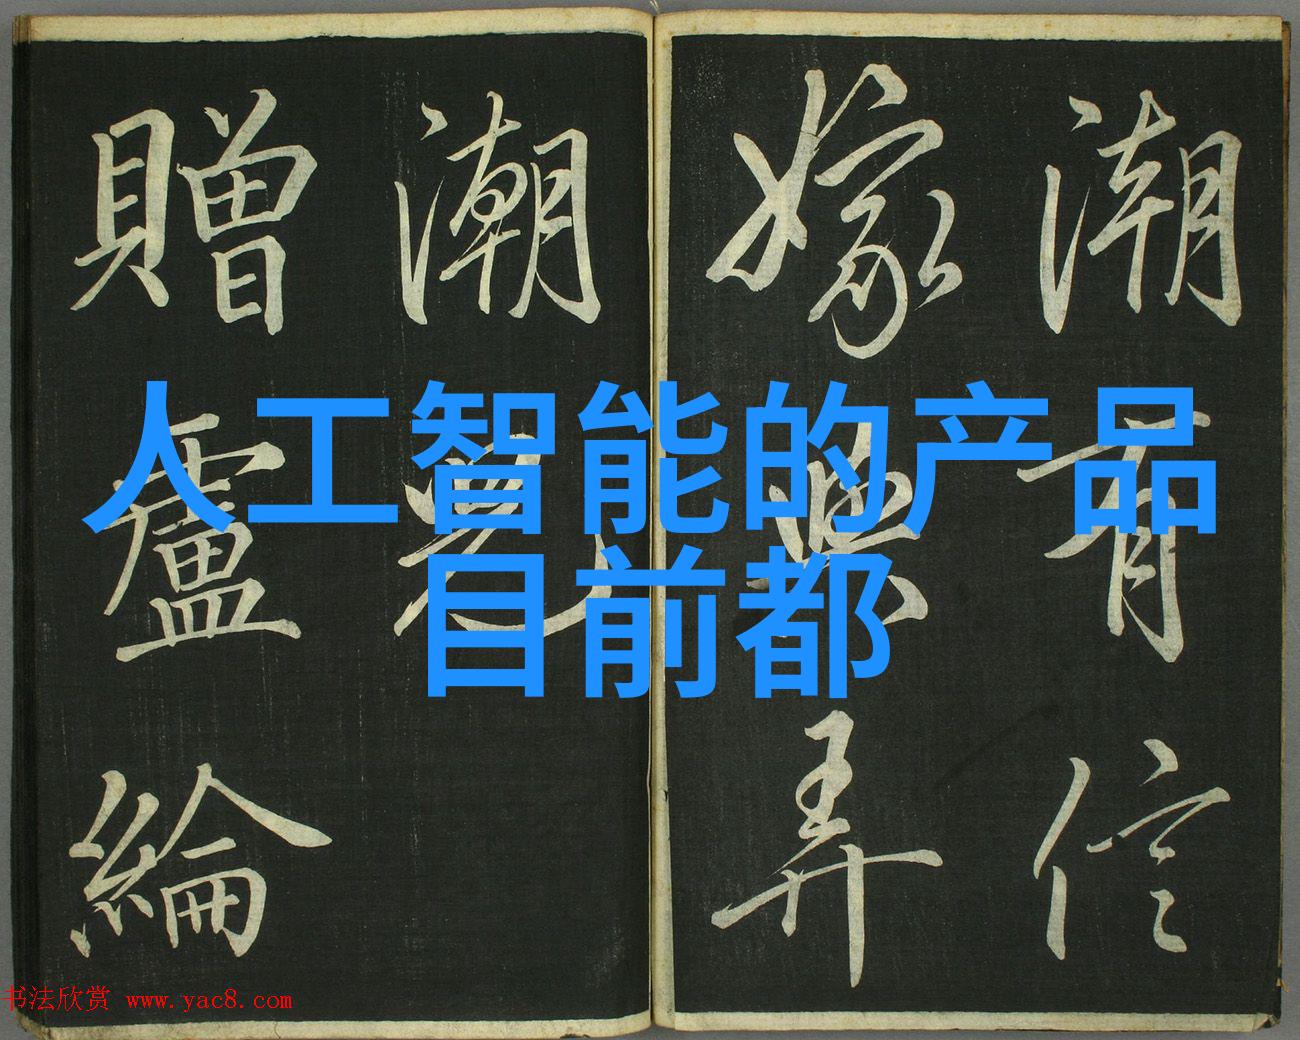 人工智能的产品
目前都
潮有信
嫁與弄
潮兒
贈盧綸
书法欣赏 www.yac8.com